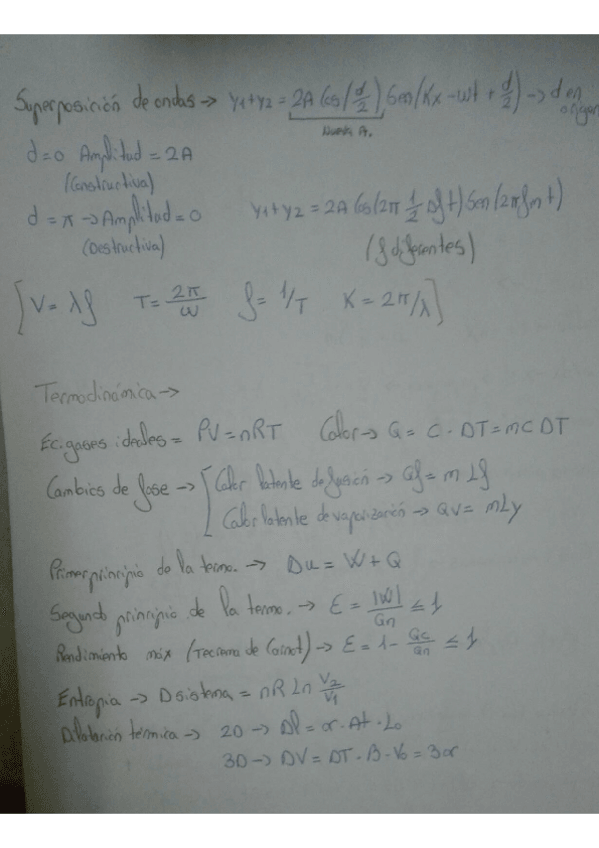 Superposición de ondas → y1+y2 = 2A Cos(d/2) Sen(Kx-wt + d/2) → d en origen
Nueva A.
d=0 Amplitud = 2A
(Constructiva)
d = π → Amplitud = 0 y1+y2 = 2A Cos(2π 1/2 Df t) Sen (2π fm t)
(Destructiva) (f diferentes)
[V = λf T = 2π/ω f = 1/T K = 2π/λ]
Termodinámica →
Ec. gases ideales = PV = nRT Calor → Q = C · DT = mC DT
Cambios de fase → [Calor latente de fusión → Qf = m Lf
Calor latente de vaporización → Qv = mLv
Primer principio de la termo. → Du = W + Q
Segundo principio de la termo. → E = |W|/Qn ≤ 1
Rendimiento máx (Teorema de Carnot) → E = 1 - Qc/Qn ≤ 1
Entropia → Dsistema = nR Ln V2/V1
Dilatación térmica → 2D → Dl = α · At · Lo
3D → DV = DT · B · Vo = 3α